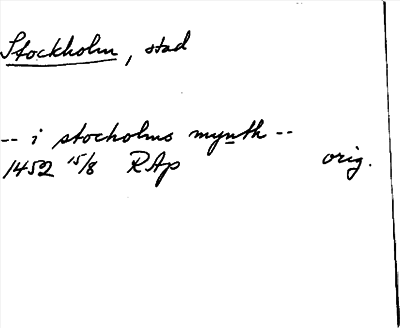 Stockholm, stad
-- i stocholms mynth --
1452 15/8 RAp orig.